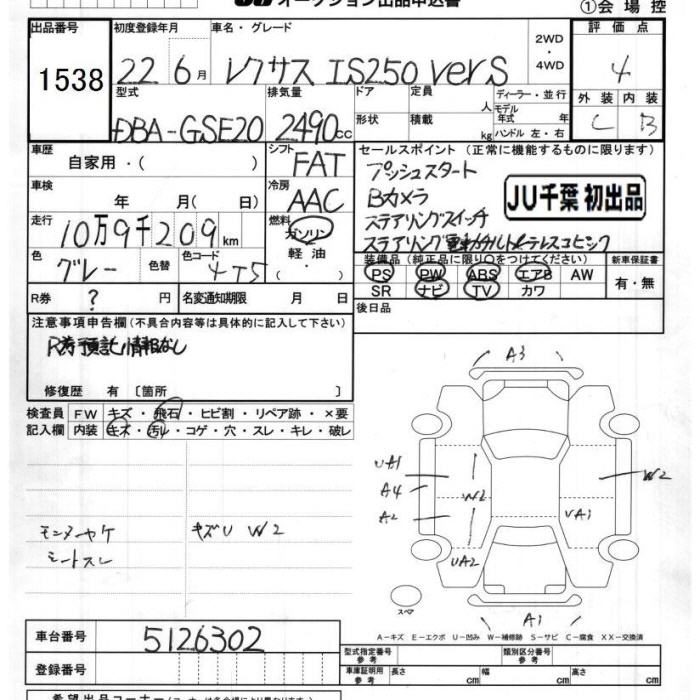 オークション出品申込書 ①会場控
出品番号 初度登録年月 車名・グレード 2WD ・ 4WD 評価点
1538 22 6月 レクサス IS250 verS 4
型式 排気量 ドア 定員 人 ディーラー・並行 外装 内装
DBA-GSE20 2490cc 形状 積載 kg モデル年式 年 ハンドル 左・右 C B
車歴 自家用・( ) シフト FAT セールスポイント (正常に機能するものに限ります)
プッシュスタート
車検 年 月( 日) 冷房 AAC Bカメラ JU千葉 初出品
走行 10万9千209km 燃料 ガソリン 軽油 ・( ) ステアリングスイッチ
ステアリング
色 グレー 色替 色コード 4T5 装備品 (純正品に限り○をつけてください) 新車保証書
PS PW ABS エアB AW 有・無
R券 ? 円 名変通知期限 月 日 SR ナビ TV カワ
注意事項申告欄(不具合内容等は具体的に記入して下さい) 後日品
R券預託情報なし
修復歴 有 [箇所 ]
検査員 FW キズ・飛石・ヒビ割・リペア跡・×要
記入欄 内装 キズ・汚レ・コゲ・穴・スレ・キレ・破レ
A3
UA1
A4 W2 W2
A2 UA1
UA2
モニターヤケ キズU W2
シートスレ
スペア
A1
A-キズ E-エクボ U-凹み W-補修跡 S-サビ C-腐食 XX-交換済
車台番号 5126302 型式指定番号 参考 類別区分番号 参考
登録番号 車庫証明用 参考 長さ cm 幅 cm 高さ cm
希望出品コーナー